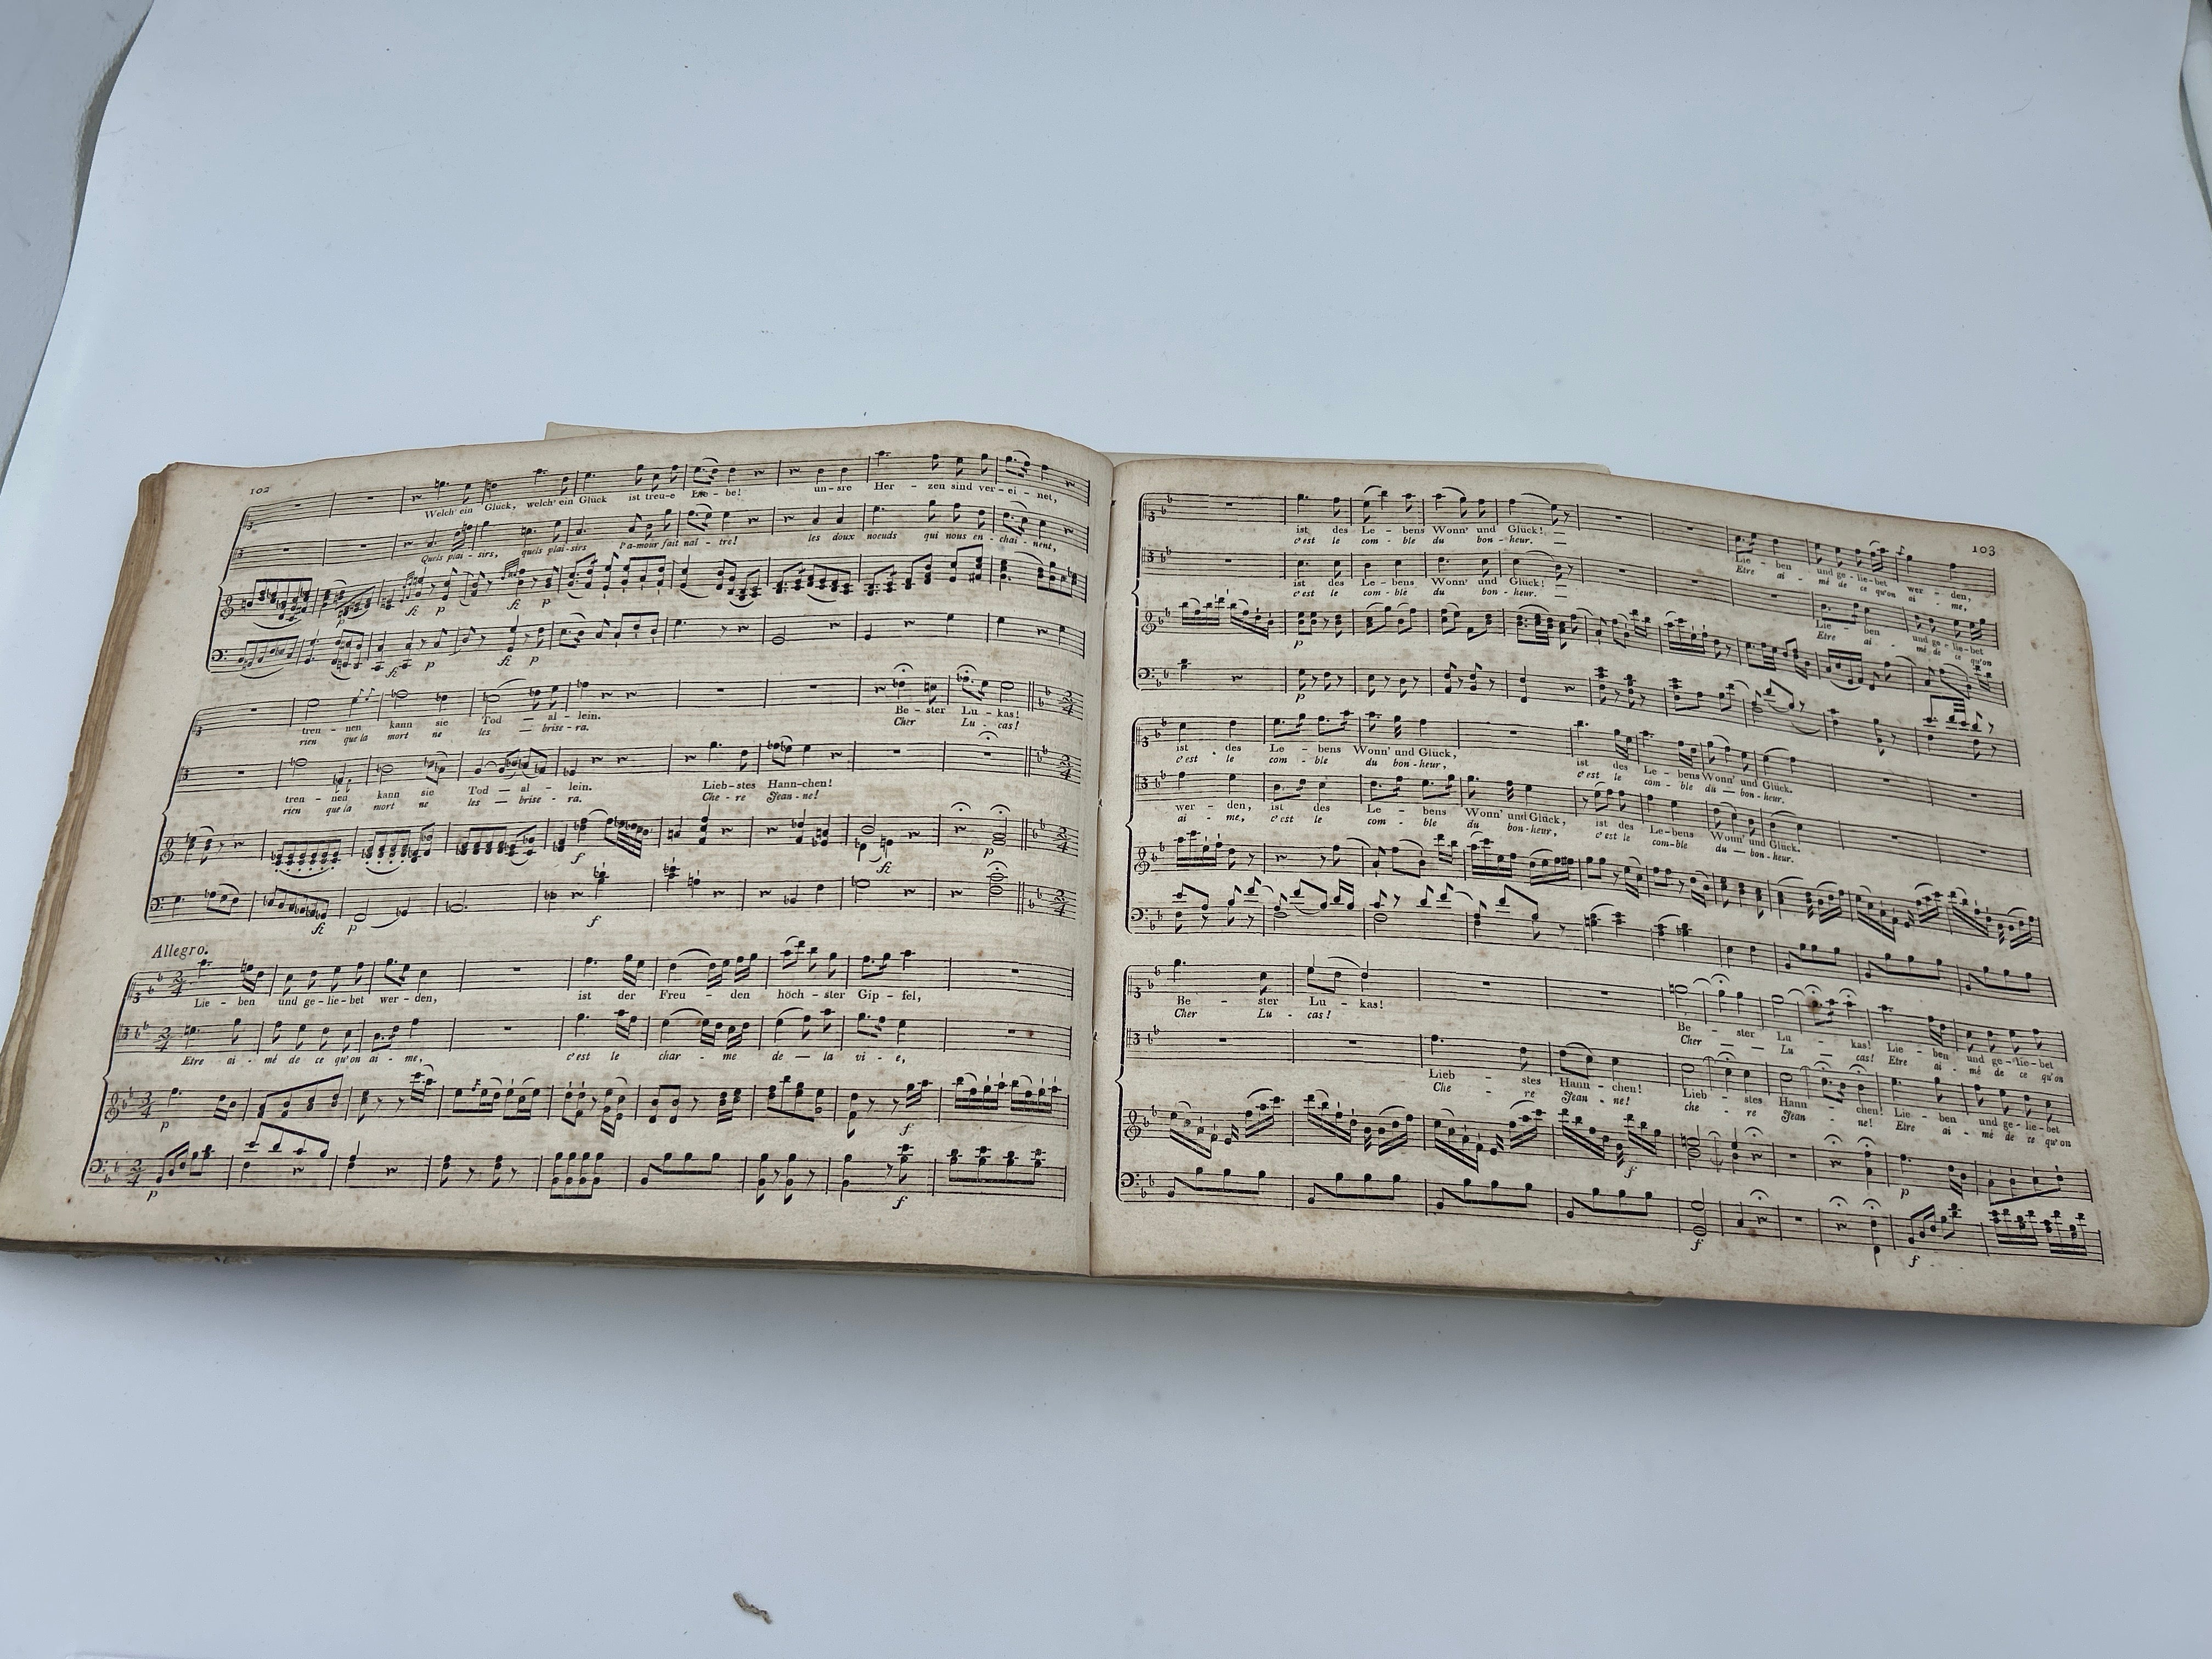 102
Welch' ein Glück, welch' ein Glück ist treu-e Lie-be! un-sre Her-zen sind ver-ei-net,
Quels plai-sirs, quels plai-sirs l'a-mour fait naî-tre! les doux noeuds qui nous en-chai-nent,
fz p fz p
p
fz p fz p
tren-nen kann sie Tod — al-lein. Be-ster Lu-kas!
rien que la mort ne les — brise-ra. Cher Lu-cas!
tren-nen kann sie Tod — al-lein. Lieb-stes Hann-chen!
rien que la mort ne les — brise-ra. Che-re Jean-ne!
f fz p
fz p f
Allegro.
Lie-ben und ge-lie-bet wer-den, ist der Freu-den höch-ster Gip-fel,
Etre ai-mé de ce qu'on ai-me, c'est le char-me de — la vi-e,
p f
p f
103
ist des Le-bens Wonn' und Glück! — Lie-ben und ge-lie-bet wer-den,
c'est le com-ble du bon-heur. — Etre ai-mé de ce qu'on ai-me,
ist des Le-bens Wonn' und Glück! — Lie-ben und ge-lie-bet
c'est le com-ble du bon-heur. — Etre ai-mé de ce qu'on
p
p
ist des Le-bens Wonn' und Glück, ist des Le-bens Wonn' und Glück.
c'est le com-ble du bon-heur, c'est le com-ble du — bon-heur.
wer-den, ist des Le-bens Wonn' und Glück, ist des Le-bens Wonn' und Glück.
ai-me, c'est le com-ble du bon-heur, c'est le com-ble du — bon-heur.
Be-ster Lu-kas! Be-ster Lu-kas! Lie-ben und ge-lie-bet
Cher Lu-cas! Cher — Lu — cas! Etre ai-mé de ce qu'on
Lieb-stes Hann-chen! Lieb-stes Hann-chen! Lie-ben und ge-lie-bet
Che-re Jean-ne! che-re Jean-ne! Etre ai-mé de ce qu'on
f p
f f